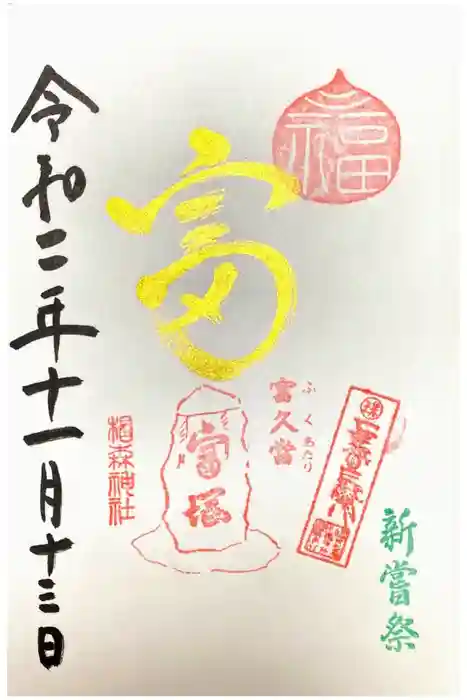 新嘗祭
福
富久當
ふくあたり
富
富塚
椙森神社
令和二年十一月十三日